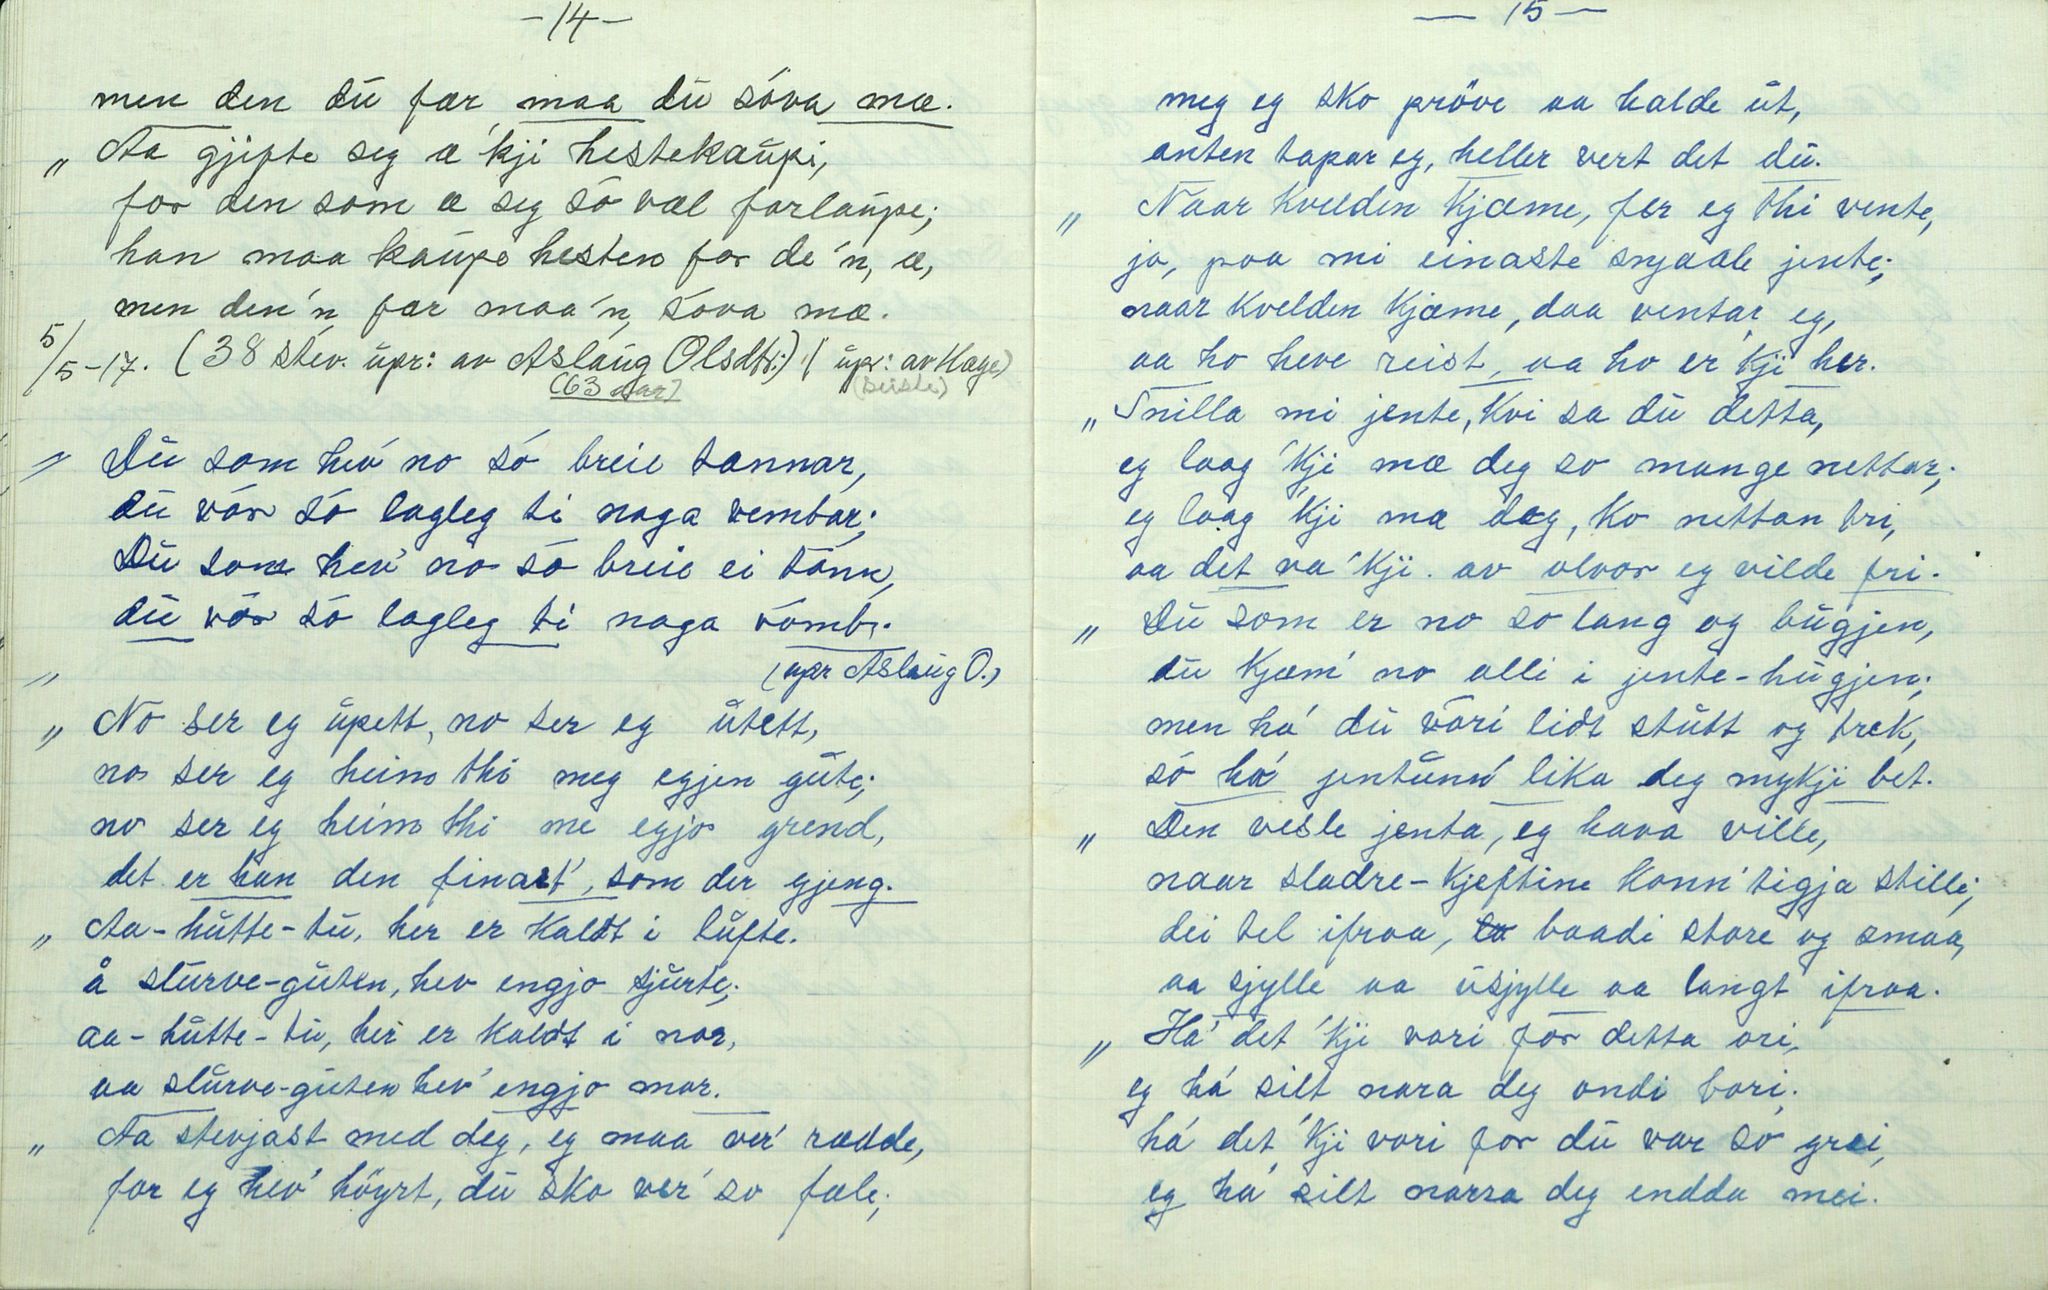 -14-
men den du fær maa du sóva mæ.
„ Aa gjifte seg æ 'kji hestekaupi,
for den som æ seg só væl forlaupe;
han maa kaupe hesten for de 'n, æ,
men den 'n fær maa 'n, sóva mæ.
5/5-17. (38 stev. upr: av Aslaug Olsdtr:) ( upr: av Hæge)
(63 aar) (siste)
„ Du som hev' no só breie tannar,
du vór só lagleg ti naga vembar;
Du som hev' no só breie ei tónn,
du vór só lagleg ti naga vómb.
(upr Aslaug O.)
„
„ No ser eg upett, no ser eg utett,
no ser eg heim thi meg egjen gute;
no ser eg heim thi me egjo grend,
det er han den finast', som der gjeng.
„ Aa-hutte-tu, her er kaldt i lufte.
å slurve-guten, hev engjo sjurte;
aa-hutte-tu, her er kaldt i nor,
aa slurve-guten hev' engjo mor.
„ Aa stevjast med deg, eg maa ver' rædde,
for eg hev' höyrt, du sko ver' so fæle;
— 15 —
meg eg sko pröve aa halde ut,
anten tapar eg, heller vert det du.
„ Naar kvelden kjæme, fær eg thi vente,
jo, paa mi einaste snjaale jente;
naar kvelden kjæme, daa ventar eg,
aa ho heve reist, aa ho er 'kji her.
„ Snilla mi jente, kvi sa du detta,
eg laag 'kji mæ deg so mange nettar;
eg laag 'kji mæ deg, ko nettan tri,
aa det va 'kji. av alvor eg vilde fri.
„ Du som er no so lang og bugjen,
du kjæm' no alli i jente-hugjen;
men há' du vóri lidt stutt og trek,
só há' jentunn' lika deg mykji bet.
„ Den vesle jenta, eg hava ville,
naar sladre-kjeftine konn' tigja stille;
dei tel ifraa, baadi store og smaa,
aa sjylle aa usjylle aa langt ifraa.
„ Há' det 'kji vori for detta ori,
eg há' silt nara deg ondi bori;
há' det 'kji vori for du var so grei,
eg há' silt narra deg endda mei.